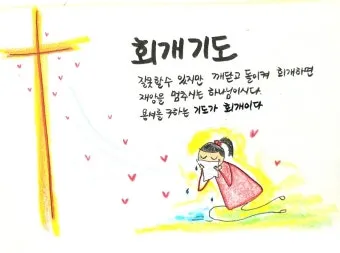 회개기도
잘못할수 있지만 깨닫고 돌이켜 회개하면
재앙을 멈추시는 하나님이시다.
용서를 구하는 기도가 회개이다